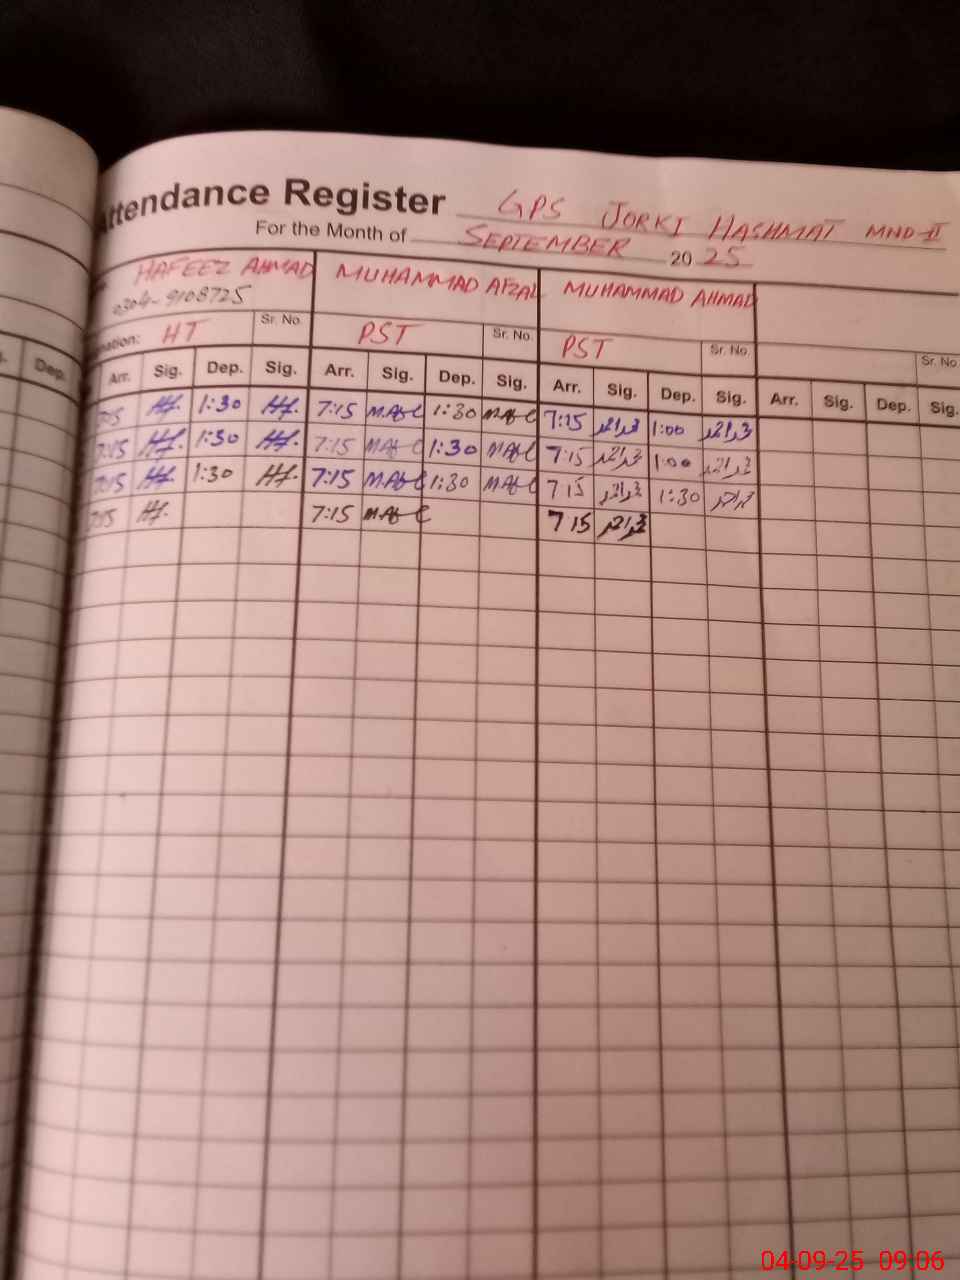 Attendance Register GPS JORKI HASHMAT MND-II
For the Month of SEPTEMBER 20 25
HAFEEZ AHMAD MUHAMMAD AFZAL MUHAMMAD AHMAD
0304-9108725
HT Sr. No. PST Sr. No. PST Sr. No. Sr. No.
Dep. Arr. Sig. Dep. Sig. Arr. Sig. Dep. Sig. Arr. Sig. Dep. Sig. Arr. Sig. Dep. Sig.
7:15 1:30 7:15 1:30 7:15 محمد احمد 1:00 محمد احمد
7:15 1:30 7:15 1:30 7:15 محمد احمد 1:00 محمد احمد
7:15 1:30 7:15 1:30 7 15 محمد احمد 1:30 محمد احمد
7:15 7:15 7 15 محمد احمد
04-09-25 09:06